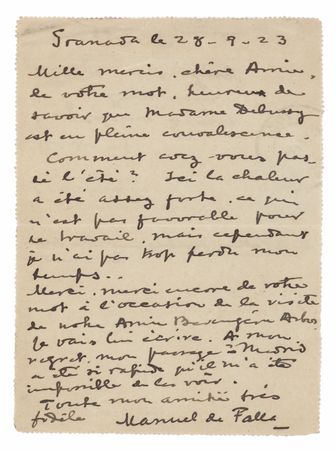 Granada le 28-9-23
Mille mercis, chère Amie,
de votre mot, heureux de
savoir que Madame Debussy
est en pleine convalescence.
Comment avez vous pas-
sé l'été? Ici la chaleur
a été assez forte, ce qui
n'est pas favorable pour
le travail, mais cependant
je n'ai pas trop perdu mon
temps..
Merci, merci encore de votre
mot à l'occasion de la visite
de notre Amie Arbos
Je vais lui écrire. A mon
regret, mon passage à Madrid
a été si rapide qu'il m'a été
impossible de les voir.
Toute mon amitié très
fidèle
Manuel de Falla